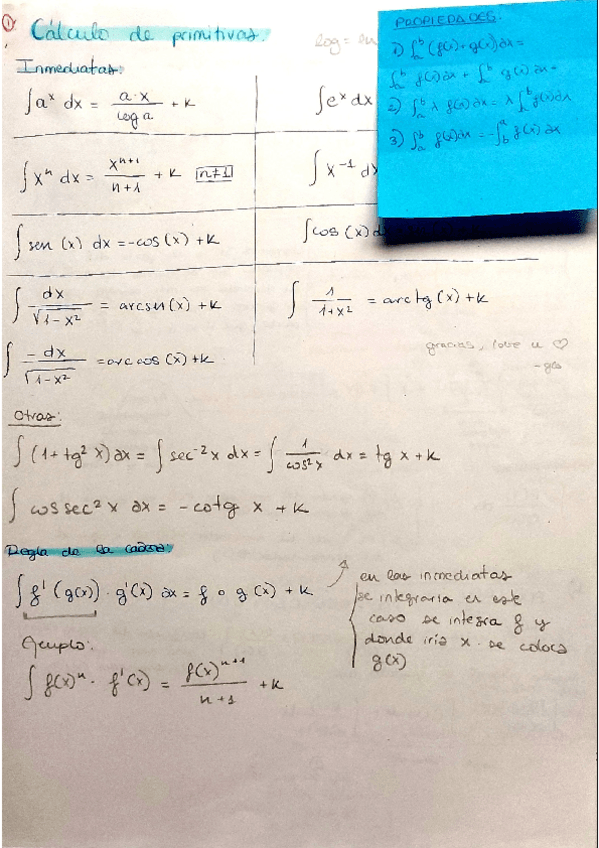 ①
Cálculo de primitivas.
log = ln
PROPIEDADES:
1) ∫ₐᵇ (f(x)+g(x))∂x =
∫ₐᵇ f(x)∂x + ∫ₐᵇ g(x) ∂x
2) ∫ₐᵇ λ f(x)∂x = λ ∫ₐᵇ f(x)∂x
3) ∫ₐᵇ f(x)∂x = -∫_bᵃ f(x) ∂x
Inmediatas:
∫ aˣ dx = a·x / log a + k
∫ eˣ dx
∫ xⁿ dx = xⁿ⁺¹ / n+1 + k n≠1
∫ x⁻¹ dx
∫ sen (x) dx = -cos (x) + k
∫ cos (x) d
∫ dx / √1-x² = arcsn(x) + k
∫ 1 / 1+x² = arctg(x) + k
∫ -dx / √1-x² = arc cos (x) + k
gracias, love u ♡
Otras:
∫ (1+tg² x) ∂x = ∫ sec⁻² x dx = ∫ 1 / cos² x dx = tg x + k
∫ cossec² x ∂x = -cotg x + k
Regla de la cadena:
∫ f' (g(x)) · g'(x) ∂x = f o g (x) + k
en las inmediatas
se integraría en este
caso se integra f y
donde iría x se coloca
g(x)
Ejemplo:
∫ f(x)ⁿ · f'(x) = f(x)ⁿ⁺¹ / n+1 + k